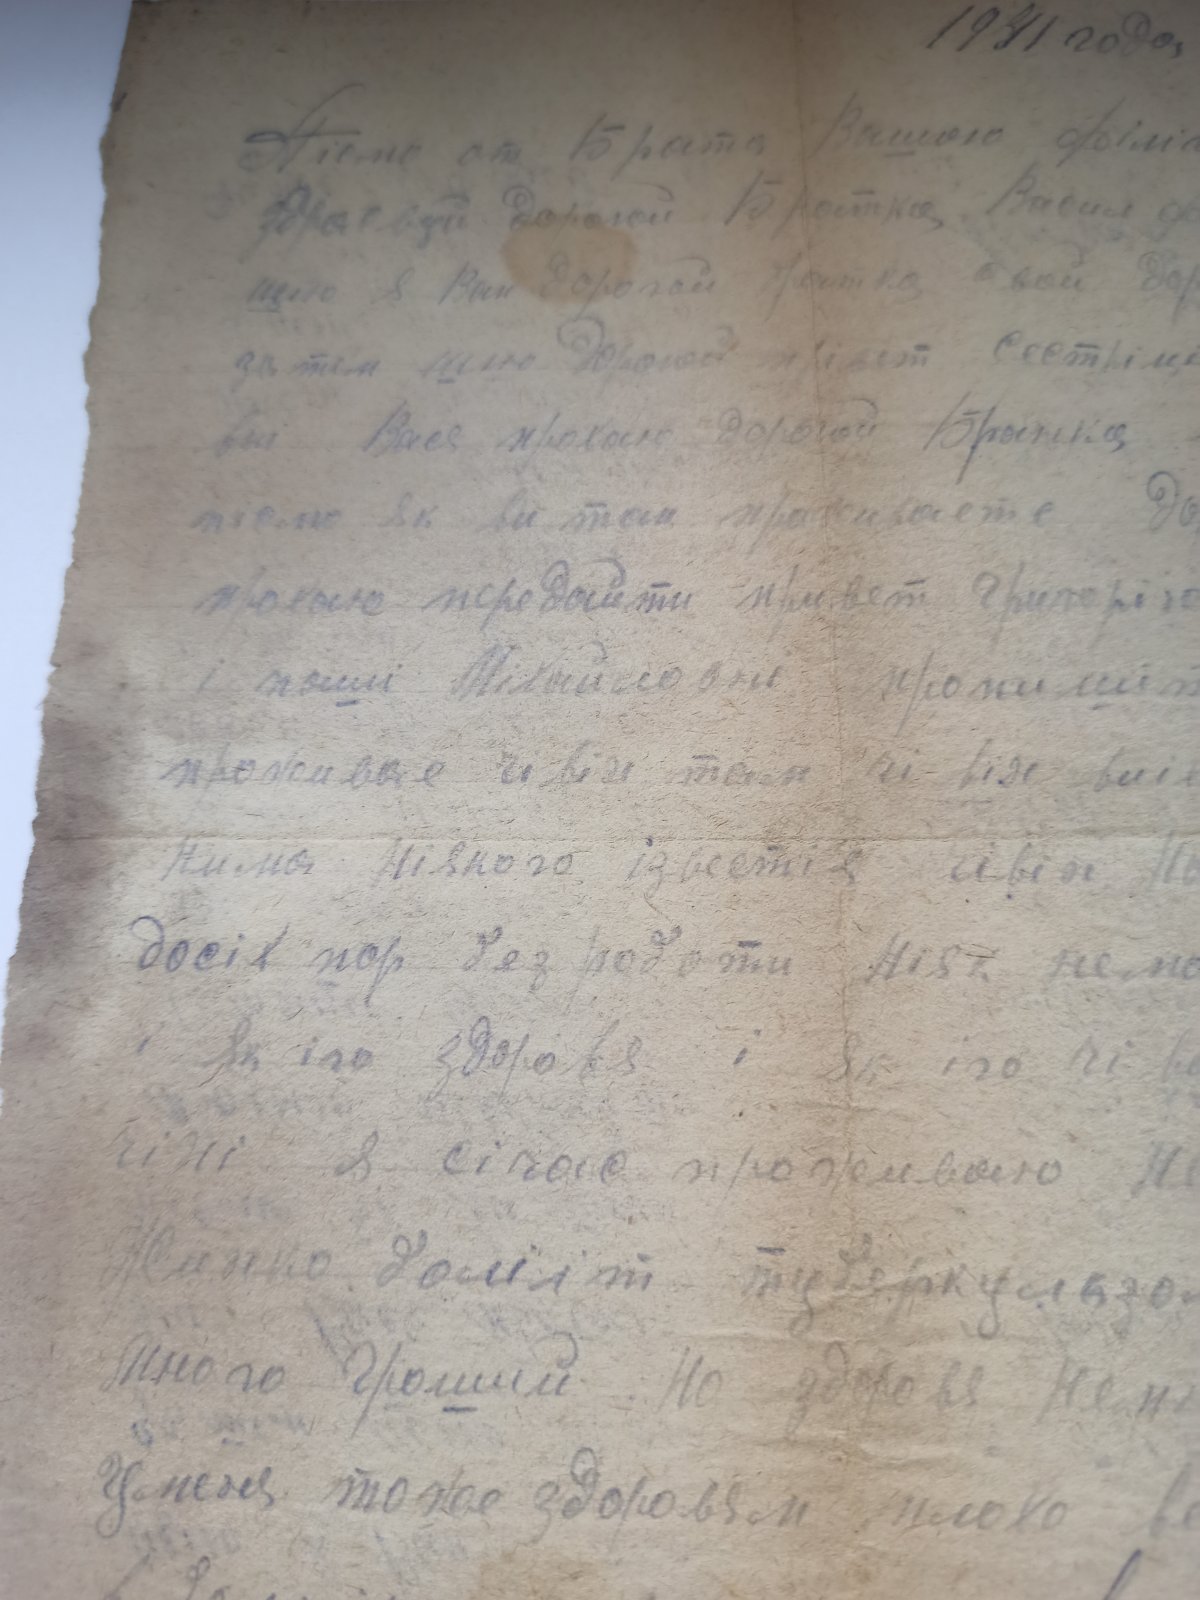 1941 года
Пісмо от Брата Вашого філіп
здраствуй дорогой Братка Васил
шлю я Вам дорогой братка свой дор
затем шлю дорогой прівет Сестріци
Вася прохаю дорогой Братка
пісмо як ви там проживаете До
прохаю передайти привет Григорію
і наші Міхайловні пропишит
проживае чи він там чі він виїх
нима ніякого ізвестія чівін на
досіх пор без роботи ніяк немо
і як іго здоровя і як іго чі во
чіні я січас проживаю не
Жинка боліїт туберкульозом
много грошии но здоровя нема
Уменя тоже здоровям плохо во